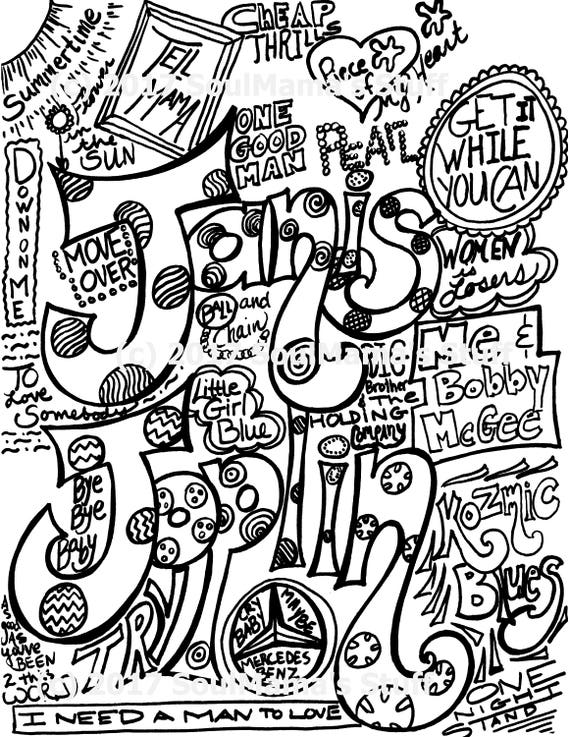 CHEAP
THRILLS
Summertime
EL
MAMA
Piece
of
my
Heart
(c) 2017 SoulMama's Stuff
ONE
GOOD
MAN
PEARL
GET IT
WHILE
YOU CAN
in the
SUN
DOWN ON ME
Janis
MOVE
OVER
WOMEN
is
Losers
BALL and
Chain
(c) 2017 SoulMama's Stuff
BIG
Brother
& The
HOLDING
Company
Me &
Bobby
McGee
TO
Love
Somebody
Little
Girl
Blue
Joplin
Bye
Bye
BABY
KOZMIC
BLUES
AS
good
AS
you've
BEEN
2 this
WORLD
TRY
CRY
BABY
MAYBE
MERCEDES
BENZ
(c) 2017 SoulMama's Stuff
ONE
NIGHT
STAND
I NEED A MAN TO LOVE